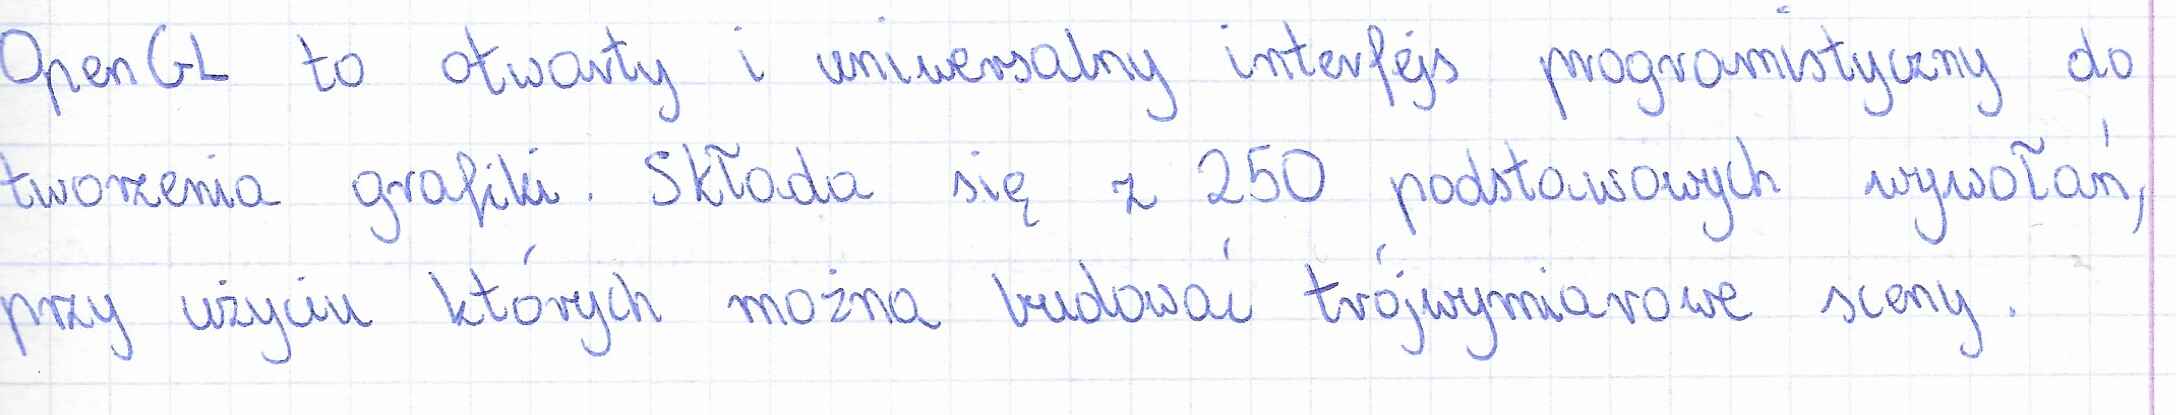 OpenGL to otwarty i uniwersalny interfejs programistyczny do
tworzenia grafiki. Składa się z 250 podstawowych wywołań,
przy użyciu których można budować trójwymiarowe sceny.